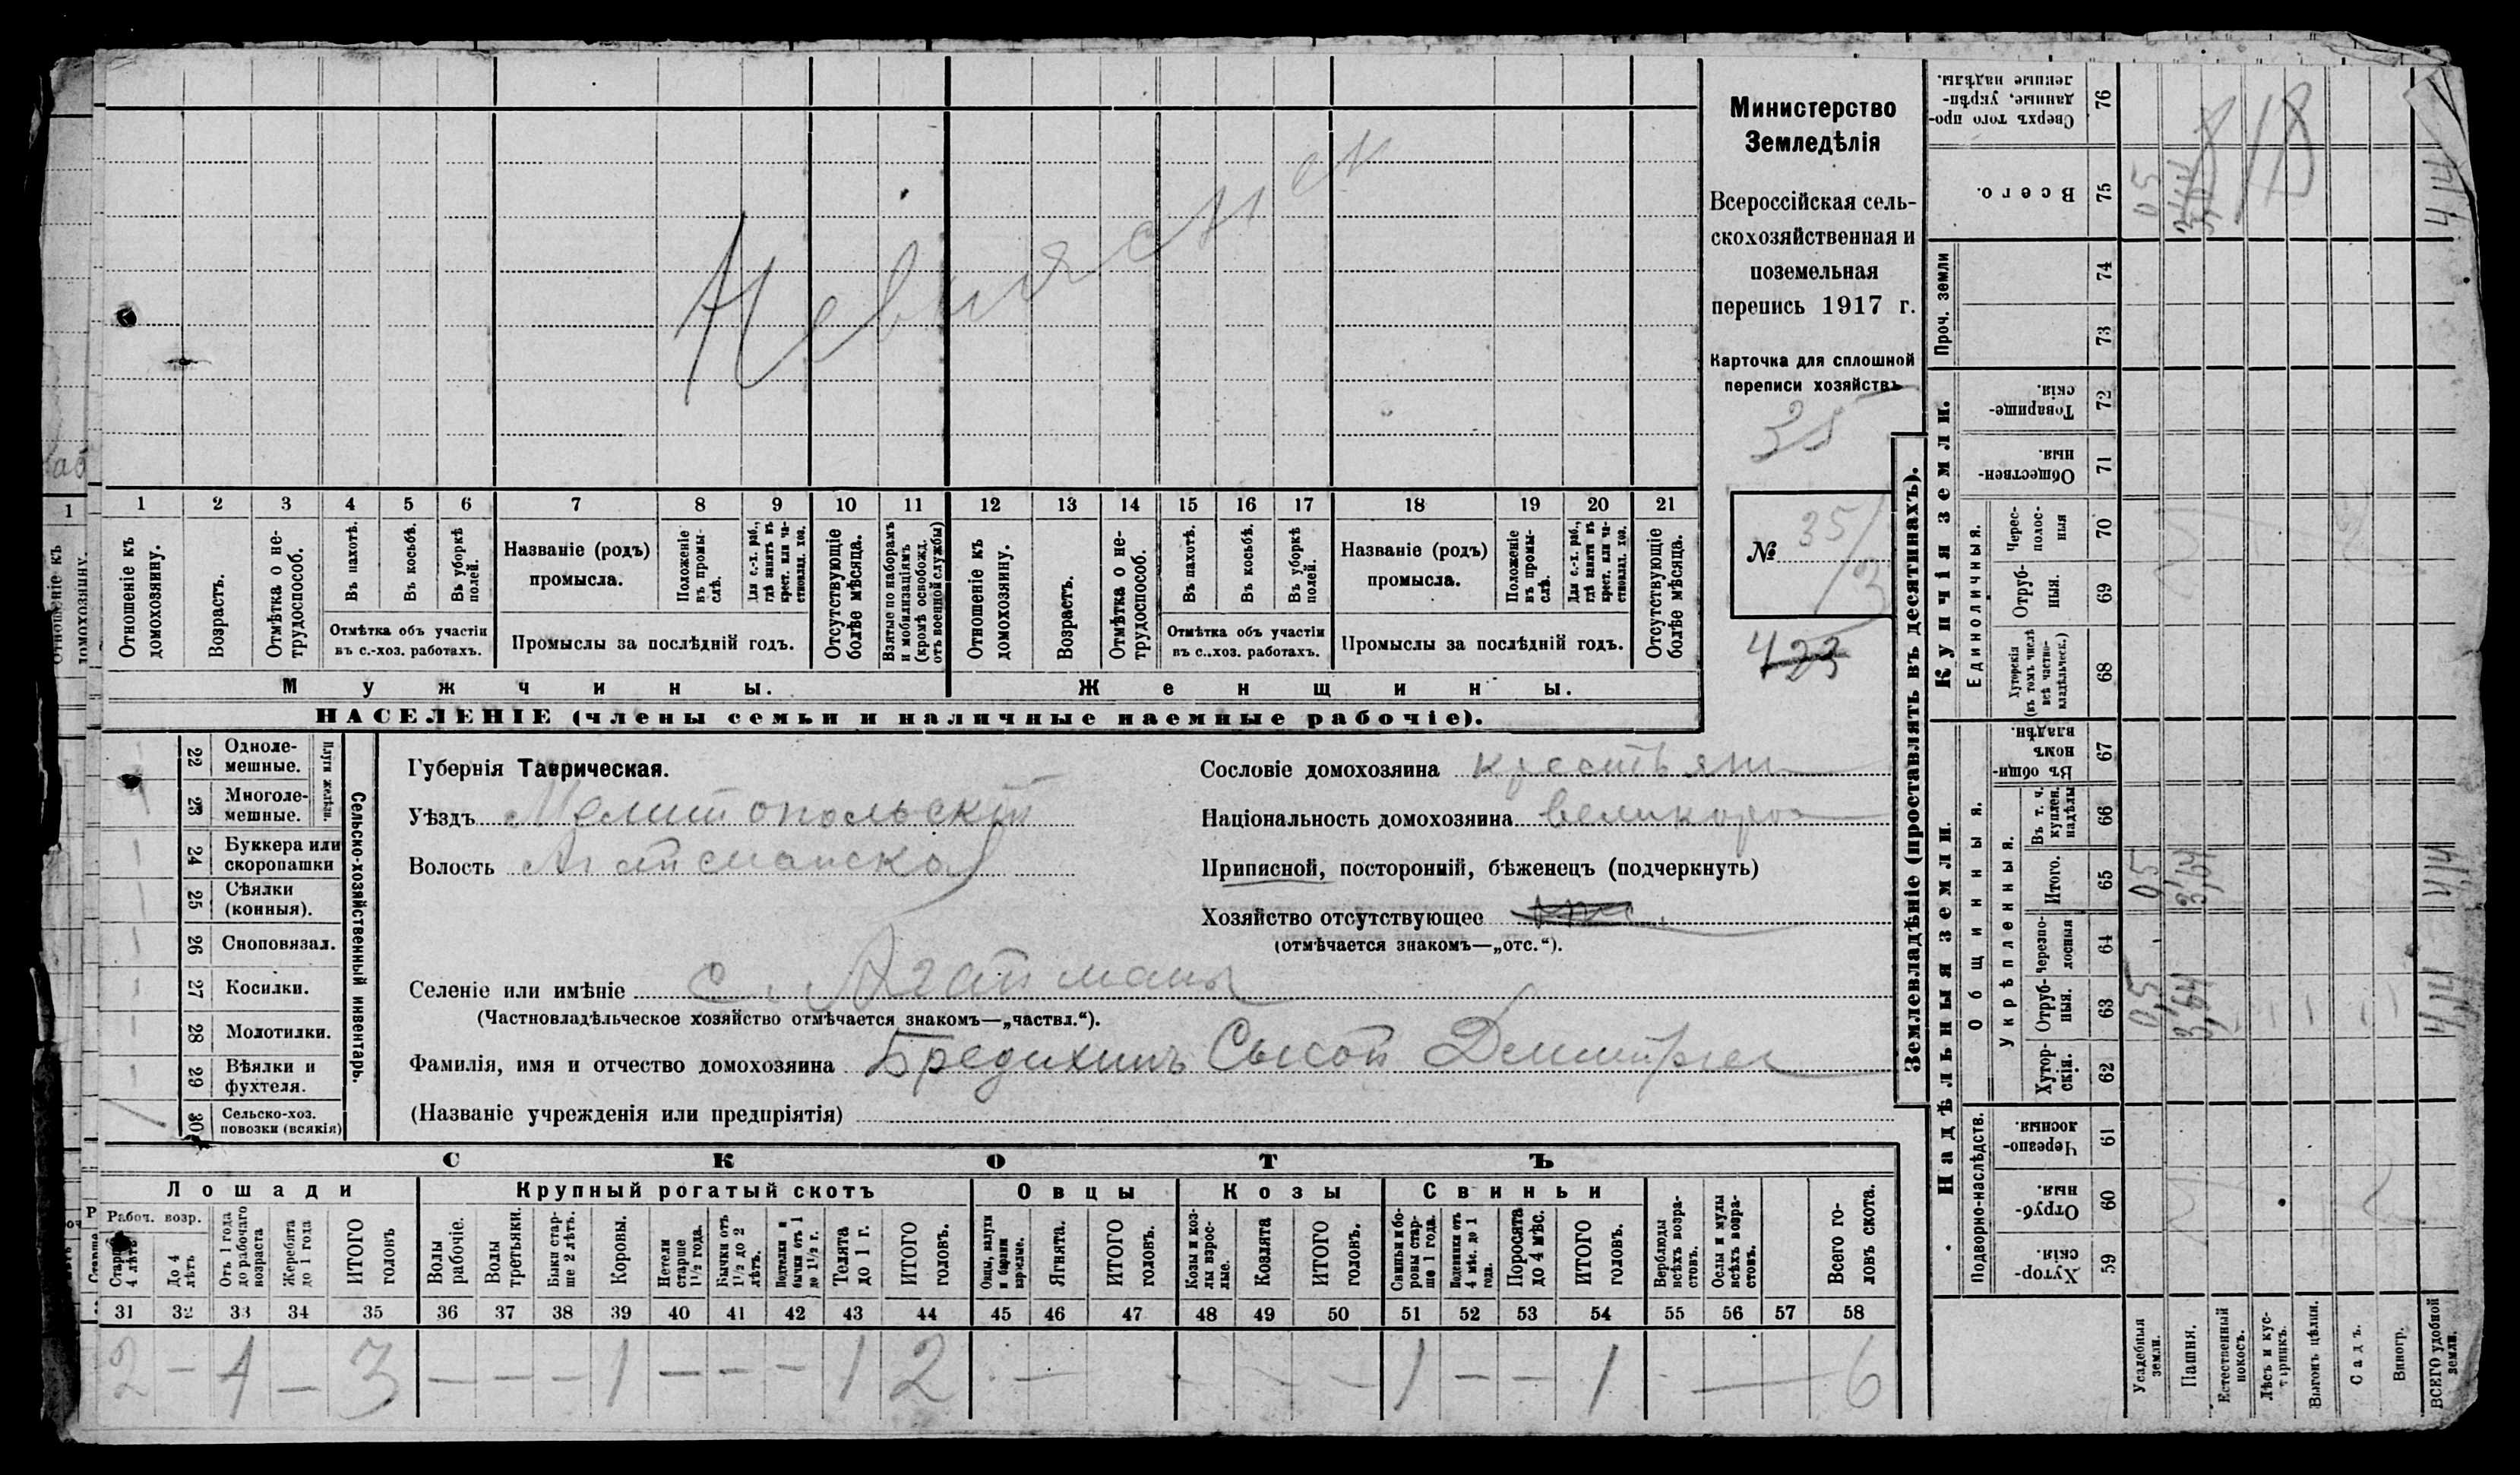 Министерство
Земледѣлія
Всероссійская сель-
скохозяйственная и
поземельная
перепись 1917 г.
Карточка для сплошной
переписи хозяйствъ
35
№ 35/13
423
1 2 3 4 5 6 7 8 9 10 11 12 13 14 15 16 17 18 19 20 21
Отношеніе къ домохозяину.
Возрастъ.
Отмѣтка о не-трудоспособ.
Въ пахотѣ.
Въ косьбѣ.
Въ уборкѣ полей.
Отмѣтка объ участіи
въ с.-хоз. работахъ.
Названіе (родъ)
промысла.
Положеніе въ промы-слѣ.
Для с.-х. раб., гдѣ занятъ въ крест. или ча-стновлад. хоз.
Промыслы за послѣдній годъ.
Отсутствующіе болѣе мѣсяца.
Взятые по наборамъ и мобилизаціямъ (кромѣ освобожд. отъ военной службы)
Отношеніе къ домохозяину.
Возрастъ.
Отмѣтка о не-трудоспособ.
Въ пахотѣ.
Въ косьбѣ.
Въ уборкѣ полей.
Отмѣтка объ участіи
въ с..хоз. работахъ.
Названіе (родъ)
промысла.
Положеніе въ промы-слѣ.
Для с.-х. раб., гдѣ занятъ въ крест. или ча-стновлад. хоз.
Промыслы за послѣдній годъ.
Отсутствующіе болѣе мѣсяца.
Мужчины.
Женщины.
НАСЕЛЕНІЕ (члены семьи и наличные наемные рабочіе).
Сельско-хозяйственный инвентарь.
Плуги желѣзн.
22 Одноле-мешные.
23 Многоле-мешные.
24 Буккера или скоропашки
25 Сѣялки (конныя).
26 Сноповязал.
27 Косилки.
28 Молотилки.
29 Вѣялки и фухтеля.
30 Сельско-хоз. повозки (всякія)
Губернія Таврическая.
Уѣздъ Мелитопольскій
Волость Агайманская
Сословіе домохозяина крестьянин
Національность домохозяина великорос
Приписной, посторонній, бѣженецъ (подчеркнуть)
Хозяйство отсутствующее
(отмѣчается знакомъ—„отс.“).
Селеніе или имѣніе с. Агайманы
(Частновладѣльческое хозяйство отмѣчается знакомъ—„частвл.“).
Фамилія, имя и отчество домохозяина Бредихинъ Сысой Дмитріев
(Названіе учрежденія или предпріятія)
СКОТЪ
Лошади
Крупный рогатый скотъ
Овцы
Козы
Свиньи
Рабоч. возр.
Старше 4 лѣтъ
До 4 лѣтъ
Отъ 1 года до рабочаго возраста
Жеребята до 1 года
ИТОГО головъ
Волы рабочіе.
Волы третьяки.
Быки стар-ше 2 лѣтъ.
Коровы.
Нетели старше 1½ года.
Бычки отъ 1½ до 2 лѣтъ.
Подтелки и бычки отъ 1 до 1½ г.
Телята до 1 г.
ИТОГО головъ.
Овцы, валухи и бараны взрослые.
Ягнята.
ИТОГО головъ.
Козы и коз-лы взрос-лые.
Козлята
ИТОГО головъ.
Свиньи и бо-ровы стар-ше 1 года.
Подсвинки отъ 4 мѣс. до 1 года.
Поросята до 4 мѣс.
ИТОГО головъ.
Верблюды всѣхъ возра-стовъ.
Ослы и мулы всѣхъ возра-стовъ.
Всего го-ловъ скота.
31 32 33 34 35 36 37 38 39 40 41 42 43 44 45 46 47 48 49 50 51 52 53 54 55 56 57 58
2 — 1 — 3 — — — 1 — — — 1 2 — — — — 1 — — 1 — 6
Землевладѣніе (проставлять въ десятинахъ).
Надѣльныя земли.
Купчія земли.
Проч. земли
Подворно-наслѣдств.
Общинныя.
Укрѣпленныя.
Единоличныя.
Хутор-скія. 59
Отруб-ныя. 60
Черезпо-лосныя. 61
Хутор-скія. 62
Отруб-ныя. 63
Черезпо-лосныя 64
Итого. 65
Въ т. ч. куплен. надѣлы 66
Въ общин-номъ владѣн. 67
Хуторскія (въ томъ числѣ всѣ частно-владѣльческ.) 68
Отруб-ныя. 69
Черес-полос-ныя 70
Обществен-ныя. 71
Товарище-скія. 72
73
74
Всего. 75
Сверхъ того про-данные, укрѣп-ленные надѣлы. 76
Усадебныя земли.
Пашня.
Естественный покосъ.
Лѣсъ и кус-тарникъ.
Выгонъ цѣлин.
Садъ.
Виногр.
ВСЕГО удобной земли.
0,5
0,5
05
18